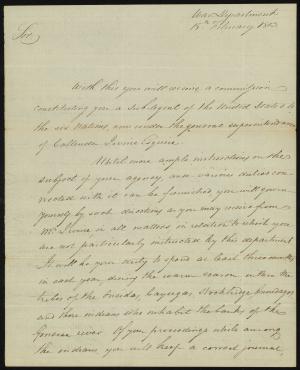 War Department
15th February 1802
Sir,
With this you will receive a commission
constituting you a Sub agent of the United States to
the six Nations, and under the general superintendance
of Callender Irvine Esquire.
Until more ample instructions on the
subject of your agency and various duties con-
nected with it can be furnished you will govern
yourself by such directions as you may receive from
Mr Irvine in all matters in relation to which you
are not particularly instructed by this department
It will be your duty to spend at least three months
in each year, during the warm season, within the
tribes of the Oneida, Cayugas, Stockbridge, Onondagas
and those indians who inhabit the banks of the
Genesee river. Of your proceedings while among
the indians you will keep a correct journal,